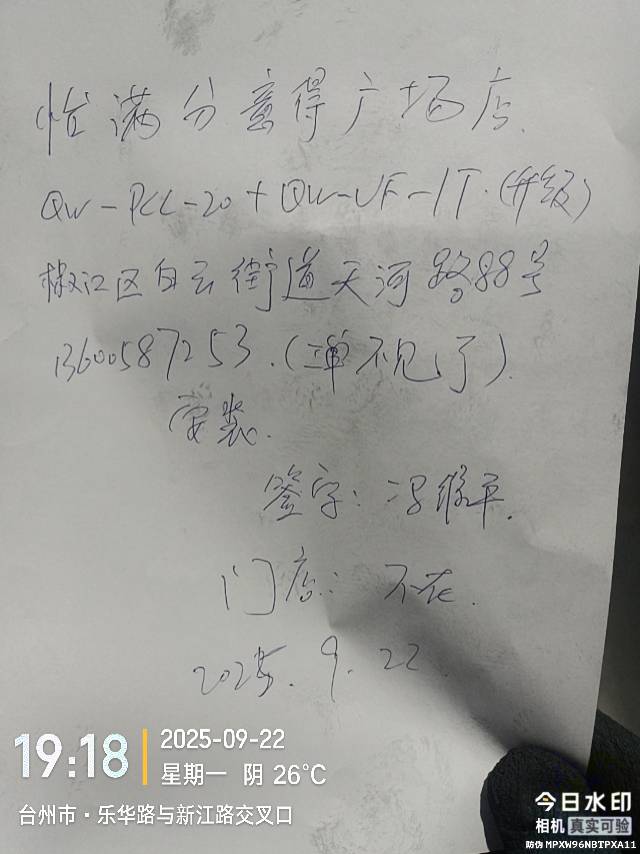 怡满分意得广场店
QW-PCL-20+QW-UF-1T.(升级)
椒江区白云街道天河路88号
13600587253.(单不见了).
安装.
签字: 冯继平.
门店: 不在.
2025. 9. 22
19:18
2025-09-22
星期一 阴 26℃
台州市·乐华路与新江路交叉口
今日水印
相机 真实可验
防伪 MPXW96NBTPXA11